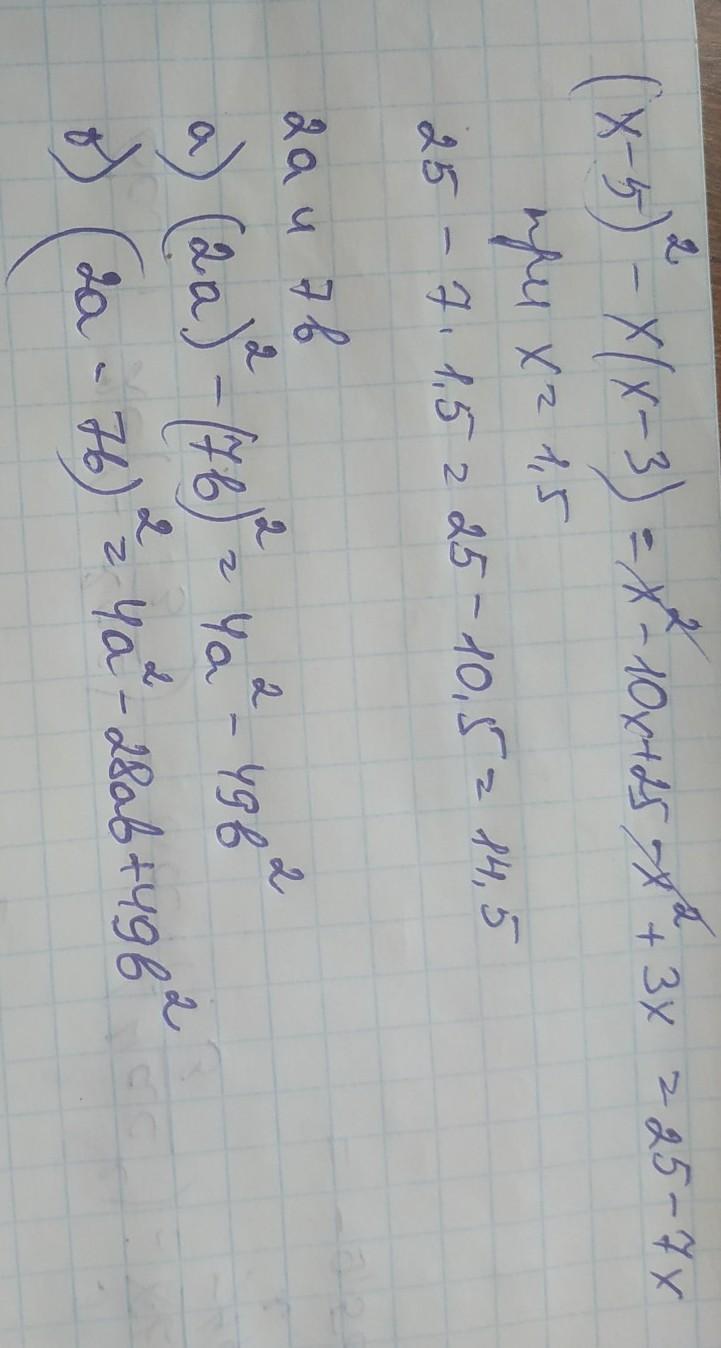 (x-5)² - x(x-3) = x² - 10x+25 - x² + 3x = 25 - 7x
при x = 1,5
25 - 7 · 1,5 = 25 - 10,5 = 14,5
2a и 7b
a) (2a)² - (7b)² = 4a² - 49b²
б) (2a - 7b)² = 4a² - 28ab + 49b²